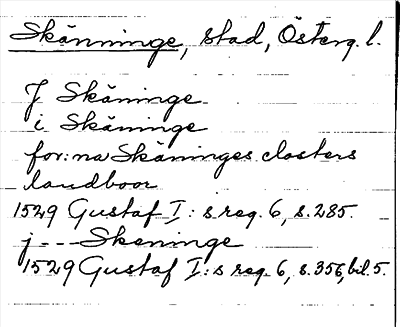 Skänninge, stad, Österg. l.
J Skäninge
i Skäninge
for:na Skäninges closters
landboor
1529 Gustaf I: s reg. 6, s. 285.
j --- Skeninge
1529 Gustaf I: s reg. 6, s. 356, bil. 5.